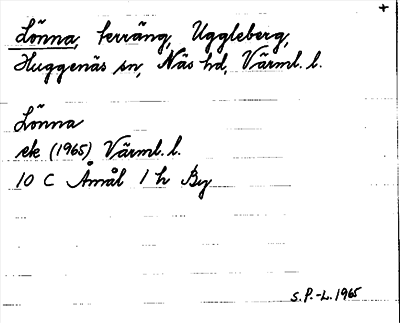 +
Lönna, terräng, Uggleberg,
Huggenäs sn, Näs hd, Värml. l.
Lönna
ek (1965) Värml. l.
10 C Åmål 1 h By
S. P.-L. 1965